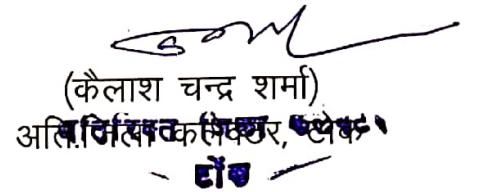 (कैलाश चन्द्र शर्मा)
अति. जिला कलेक्टर, टोंक
टोंक